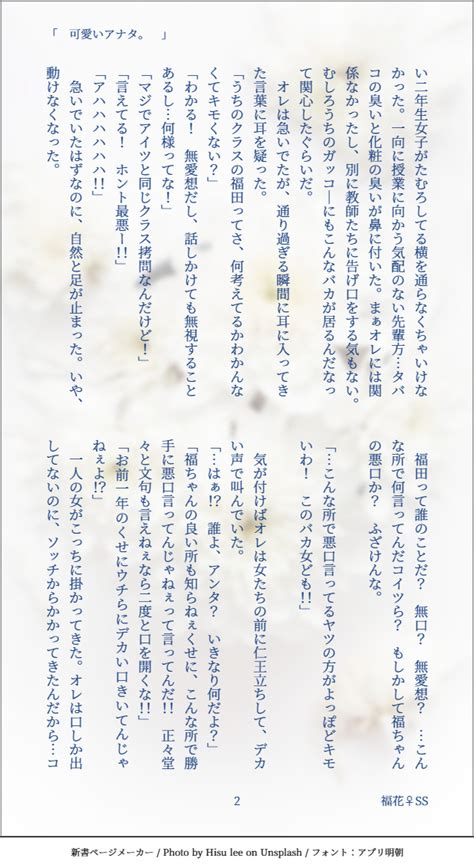 「　可愛いアナタ。　」
い二年生女子がたむろしてる横を通らなくちゃいけな
かった。一向に授業に向かう気配のない先輩方…タバ
コの臭いと化粧の臭いが鼻に付いた。まぁオレには関
係なかったし、別に教師たちに告げ口をする気もない。
むしろうちのガッコーにもこんなバカが居るんだなっ
て関心したぐらいだ。
　オレは急いでたが、通り過ぎる瞬間に耳に入ってき
た言葉に耳を疑った。
「うちのクラスの福田ってさ、何考えてるかわかんな
くてキモくない？」
「わかる！　無愛想だし、話しかけても無視すること
あるし…何様ってな！」
「マジでアイツと同じクラス拷問なんだけど！」
「言えてる！　ホント最悪ー!!」
「アハハハハハハ!!」
　急いでいたはずなのに、自然と足が止まった。いや、
動けなくなった。
　福田って誰のことだ？　無口？　無愛想？　…こん
な所で何言ってんだコイツら？　もしかして福ちゃん
の悪口か？　ふざけんな。
「…こんな所で悪口言ってるヤツの方がよっぽどキモ
いわ！　このバカ女ども!!」
　気が付けばオレは女たちの前に仁王立ちして、デカ
い声で叫んでいた。
「…はぁ!?　誰よ、アンタ？　いきなり何だよ？」
「福ちゃんの良い所も知らねぇくせに、こんな所で勝
手に悪口言ってんじゃねぇって言ってんだ!!　正々堂
々と文句も言えねぇなら二度と口を開くな!!」
「お前一年のくせにウチらにデカい口きいてんじゃ
ねぇよ!?」
　一人の女がこっちに掛かってきた。オレは口しか出
してないのに、ソッチからかかってきたんだから…コ
2
福花♀SS
新書ページメーカー / Photo by Hisu lee on Unsplash / フォント：アプリ明朝